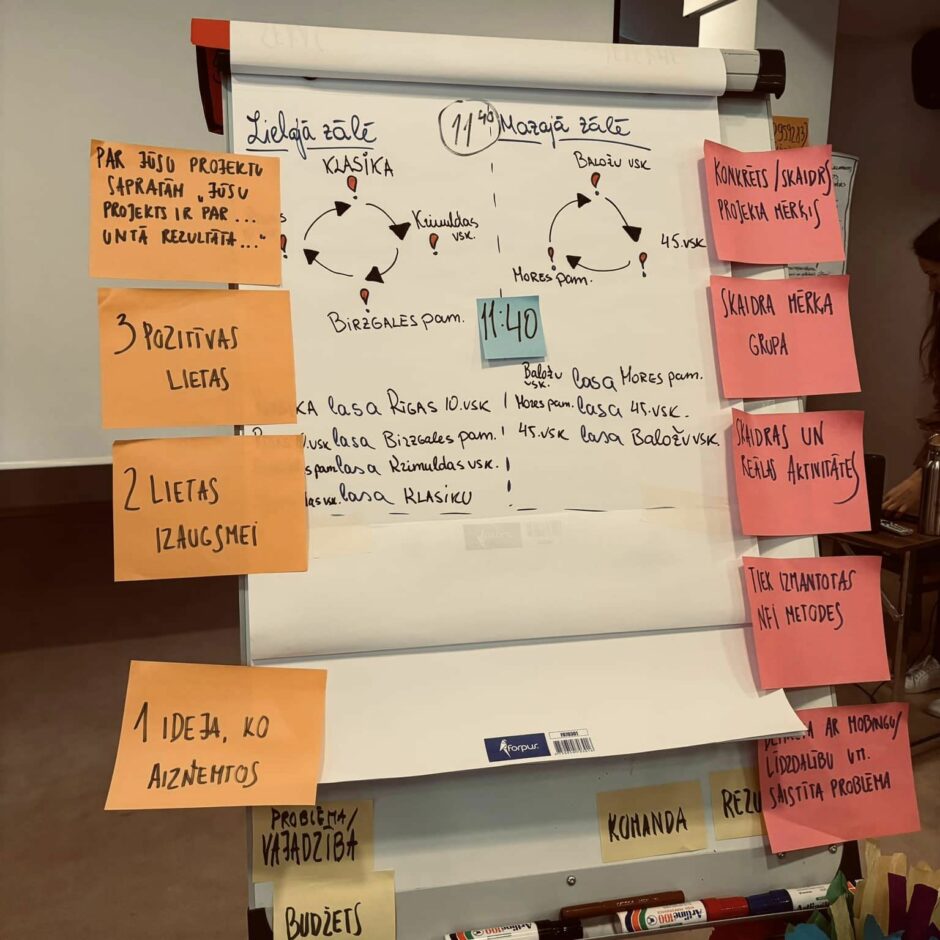 Lielajā zālē
11 40
Mazajā zālē
KLASIKA
Krimuldas
vsk.
BIRZGALES pam.
BALOŽU VSK
45.VSK
MORES pam.
11:40
KA lasa RĪGAS 10.VSK
.vsk lasa BIRZGALES pam.
pam lasa KRIMULDAS VSK.
vsk. lasa KLASIKU
Baložu
vsk. lasa MORES pam.
MORES pam. lasa 45.VSK.
45.VSK lasa BALOŽU VSK
PAR JŪSU PROJEKTU
SAPRATĀM „JŪSU
PROJEKTS IR PAR...
UN TĀ REZULTĀTĀ..."
3 POZITĪVAS
LIETAS
2 LIETAS
IZAUGSMEI
1 IDEJA, KO
AIZŅEMTOS
KONKRĒTS/SKAIDRS
PROJEKTA MĒRĶIS
SKAIDRA MĒRĶA
GRUPA
SKAIDRAS UN
REĀLAS AKTIVITĀTES
TIEK IZMANTOTAS
NFI METODES
AR MOBINGU/
LĪDZDALĪBU UN.
SAISTĪTA PROBLĒMA
forpus
PROBLĒMA/
VAJADZĪBA
BUDŽETS
KOMANDA
REZU
Artline 100
Artline 100
Artline